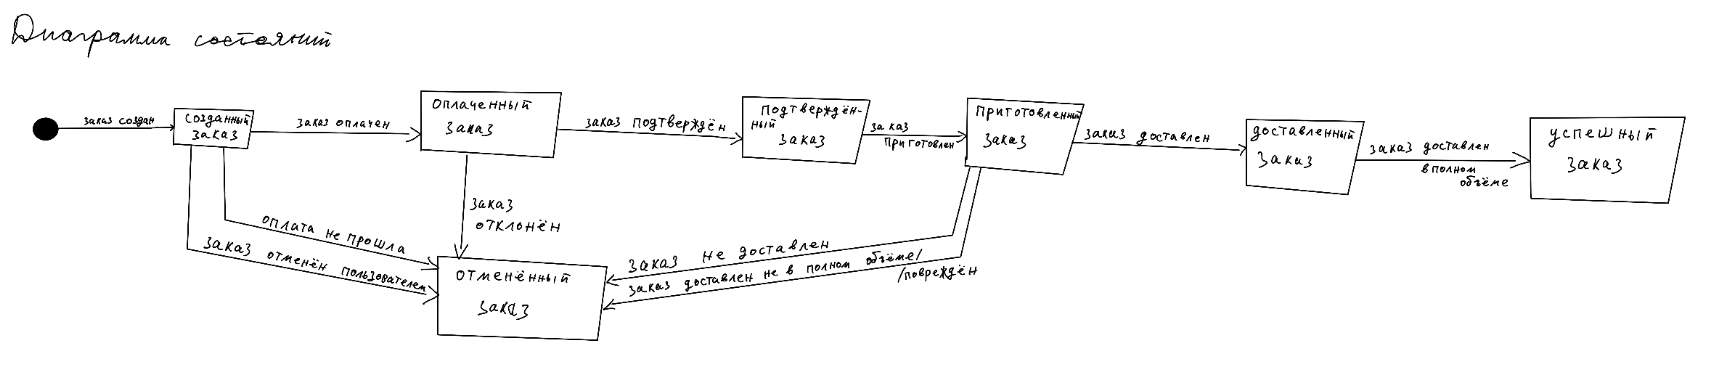 Диаграмма состояний
заказ создан
созданный
заказ
заказ оплачен
оплаченный
заказ
заказ подтверждён
подтверждён-
ный
заказ
заказ
приготовлен
приготовленный
заказ
заказ доставлен
доставленный
заказ
заказ доставлен
в полном
объёме
успешный
заказ
оплата не прошла
заказ отменён пользователем
заказ
отклонён
отменённый
заказ
заказ не доставлен
заказ доставлен не в полном объёме/
/повреждён